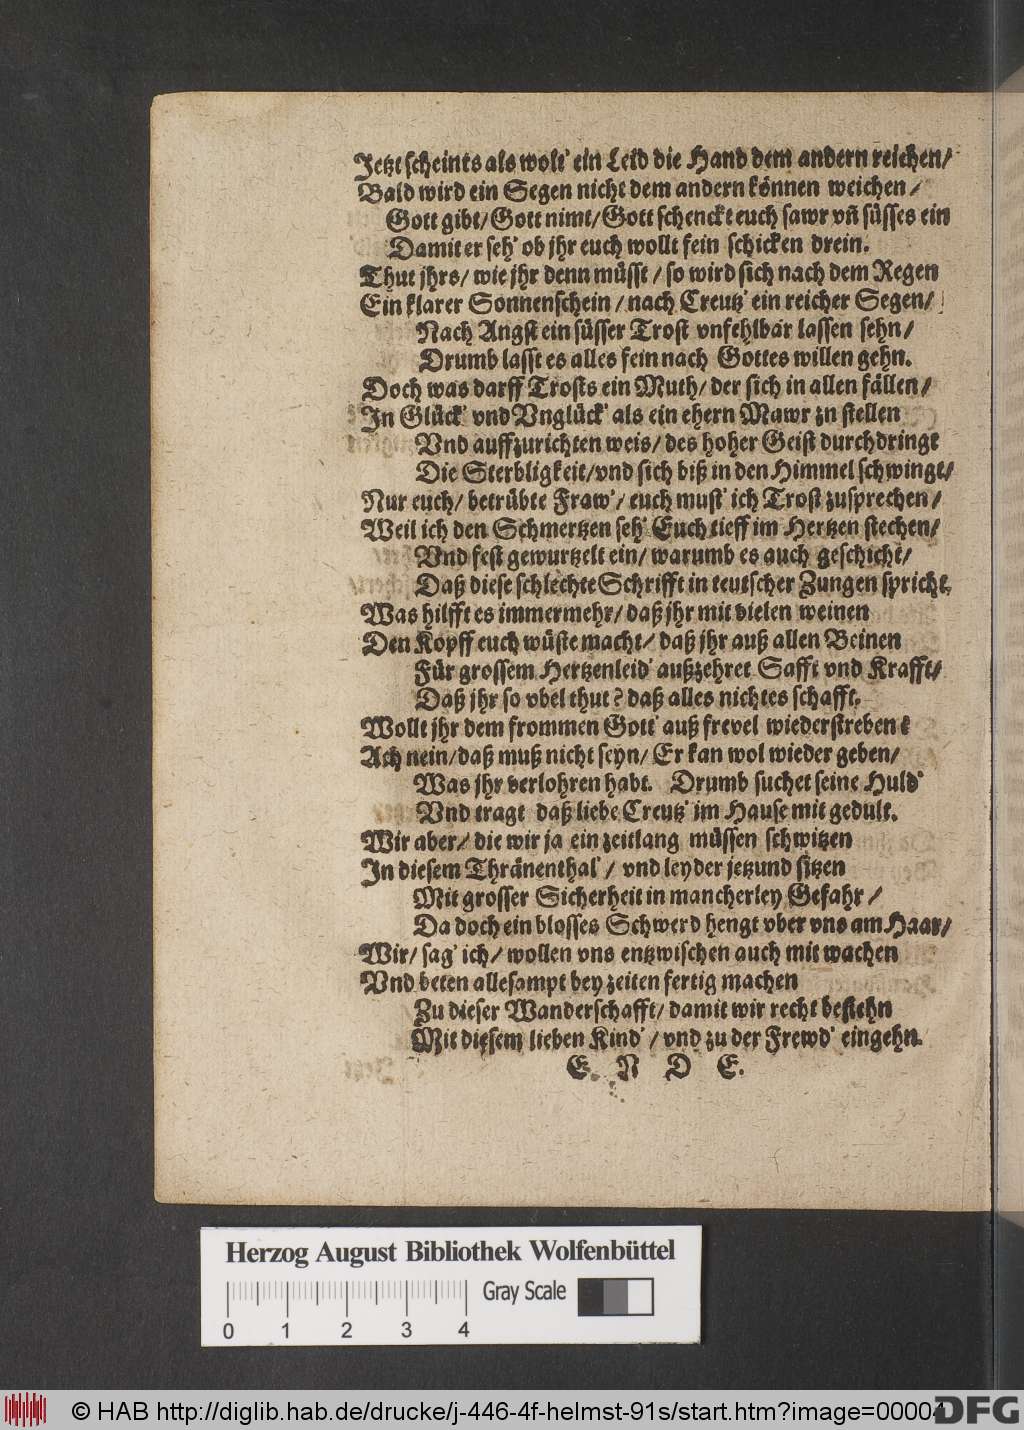 Jetzt scheints als wolt' ein Leid die Hand dem andern reichen/
Bald wird ein Segen nicht dem andern können weichen/
Gott gibt/Gott nimt/Gott schenckt euch sawr vñ süsses ein
Damit er seh' ob jhr euch wollt fein schicken drein.
Thut jhrs/ wie jhr denn müsst/ so wird sich nach dem Regen
Ein klarer Sonnenschein/ nach Creutz' ein reicher Segen/
Nach Angst ein süsser Trost vnfehlbar lassen sehn/
Drumb lasst es alles fein nach Gottes willen gehn.
Doch was darff Trosts ein Muth/ der sich in allen fällen/
In Glück' vnd Vnglück' als ein ehern Mawr zn stellen
Vnd auffzurichten weis/ des hoher Geist durchdringt
Die Sterbligkeit/vnd sich biß in den Himmel schwingt/
Nur euch/ betrübte Fraw'/ euch must' ich Trost zusprechen/
Weil ich den Schmertzen seh' Euch tieff im Hertzen stechen/
Vnd fest gewurtzelt ein/ warumb es auch geschicht/
Daß diese schlechte Schrifft in teutscher Zungen spricht.
Was hilfft es immermehr/ daß jhr mit vielen weinen
Den Kopff euch wüste macht/ daß jhr auß allen Beinen
Für grossem Hertzenleid' außzehret Safft vnd Krafft/
Daß jhr so vbel thut? daß alles nichtes schafft.
Wollt jhr dem frommen Gott' auß frevel wiederstreben?
Ach nein/daß muß nicht seyn/ Er kan wol wieder geben/
Was jhr verlohren habt. Drumb suchet seine Huld'
Vnd tragt daß liebe Creutz' im Hause mit gedult.
Wir aber/ die wir ja ein zeitlang müssen schwitzen
In diesem Thränenthal'/ vnd leyder jetzund sitzen
Mit grosser Sicherheit in mancherley Gefahr/
Da doch ein blosses Schwerd hengt vber vns am Haar/
Wir/ sag' ich/ wollen vns entzwischen auch mit wachen
Vnd beten allesampt bey zeiten fertig machen
Zu dieser Wanderschafft/ damit wir recht bestehn
Mit diesem lieben Kind'/ vnd zu der Frewd' eingehn.
E. N D E.
Herzog August Bibliothek Wolfenbüttel
Gray Scale
0 1 2 3 4
© HAB http://diglib.hab.de/drucke/j-446-4f-helmst-91s/start.htm?image=00004
DFG